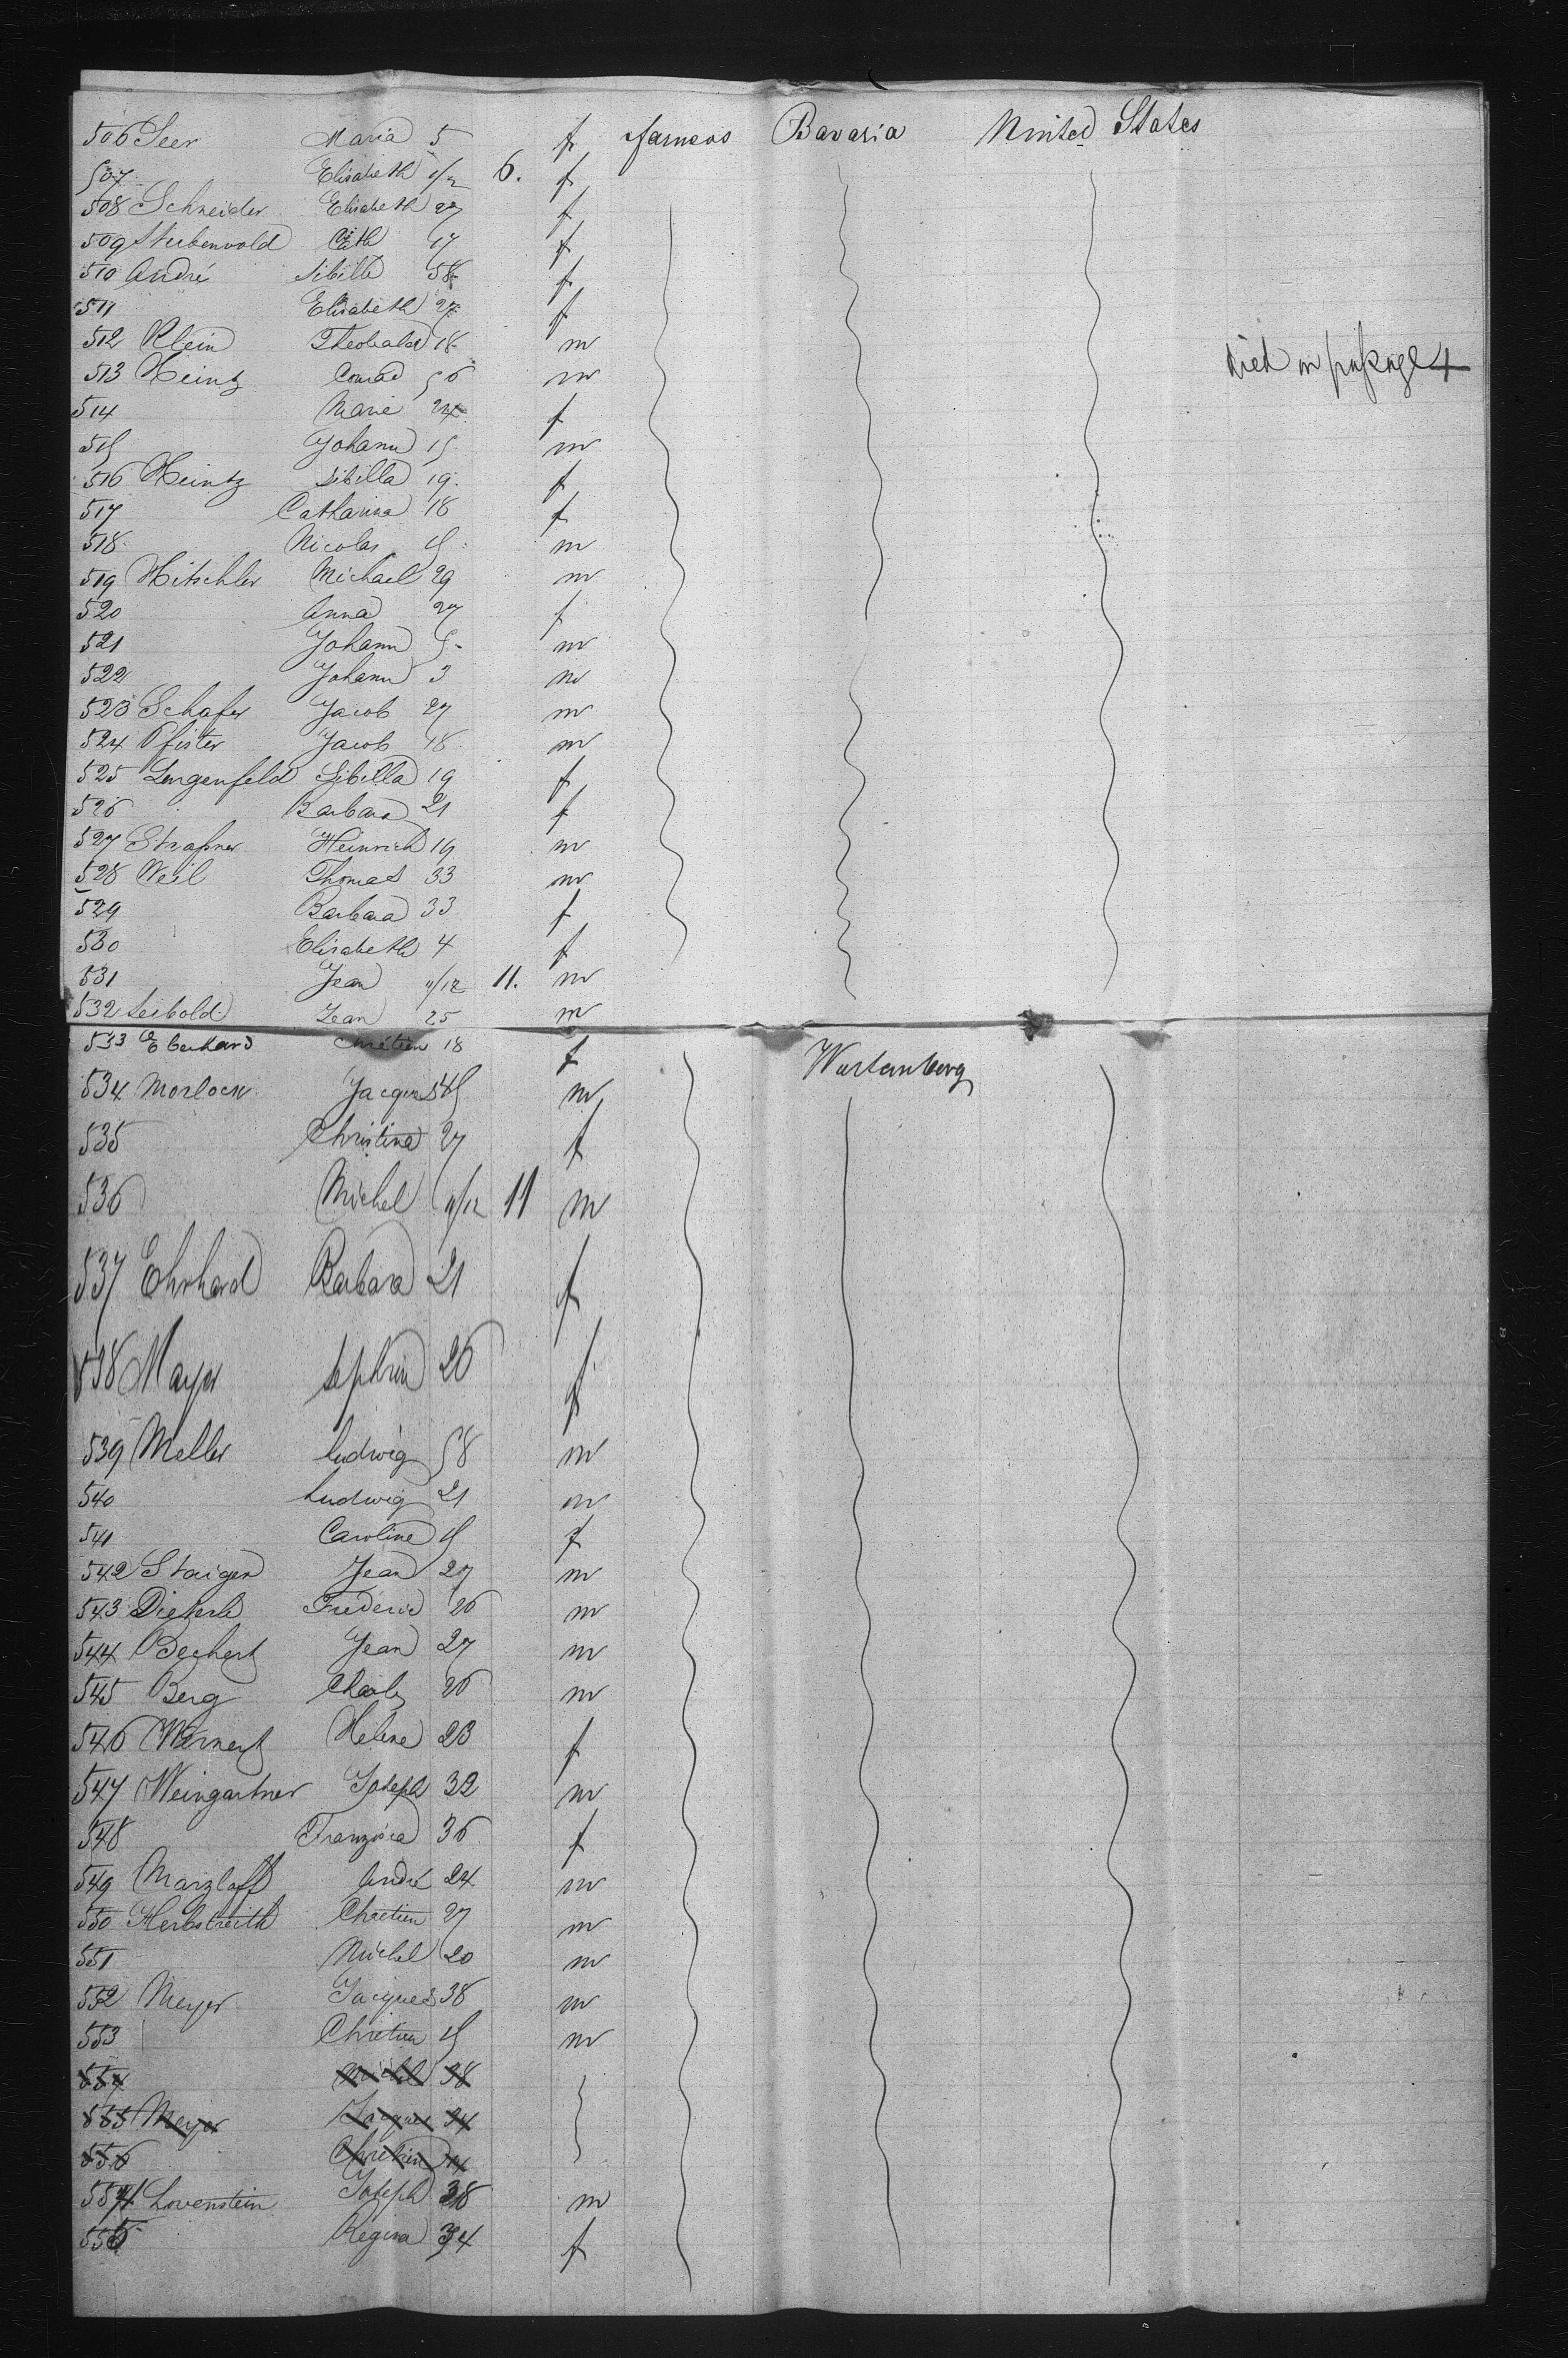 506 Seer Maria 5 f farmers Bavaria United States
507 Elisabeth 6/12 6. f
508 Schneider Elisabeth 27 f
509 Stubenvold Cath 17 f
510 André Sibilla 58 f
511 Elisabeth 27 f
512 Klein Theobald 18 m
513 Heintz Conrad 56 m died on passage +
514 Marie 24 f
515 Johann 15 m
516 Heintz Sibilla 19. f
517 Catharina 18 f
518 Nicolas 15 m
519 Hitschler Michael 29 m
520 Anna 27 f
521 Johann 5 m
522 Johann 3 m
523 Schafer Jacob 27 m
524 Pfister Jacob 18 m
525 Lengenfeld Sibilla 19 f
526 Barbara 21 f
527 Strassner Heinrich 19 m
528 Weil Thomas 33 m
529 Barbara 33 f
530 Elisabeth 4 f
531 Jean 11/12 11. m
532 Seibold Jean 25 m
533 Eberhard Chrétien 18 f Wurtemberg
534 Morlock Jacques 45 m
535 Christina 27 f
536 Michel 11/12 11 m
537 Ehrhard Barbara 21 f
538 Mayer 26 f
539 Meller Ludwig 58 m
540 Ludwig 21 m
541 Caroline 15 f
542 Staiger Jean 27 m
543 Dieterle Frederic 26 m
544 Bechert Jean 27 m
545 Berg Charles 26 m
546 Wernert Helene 23 f
547 Weingartner Joseph 32 m
548 Franzisca 36 f
549 Marzloff André 24 m
550 Herbstreith Chretien 27 m
551 Michel 20 m
552 Meyer Jacques 38 m
553 Chretien 15 m
554 Michel 38
555 Meyer Jacques 34
556 Chretien 14
554 Lovenstein Joseph 38 m
555 Regina 34 f